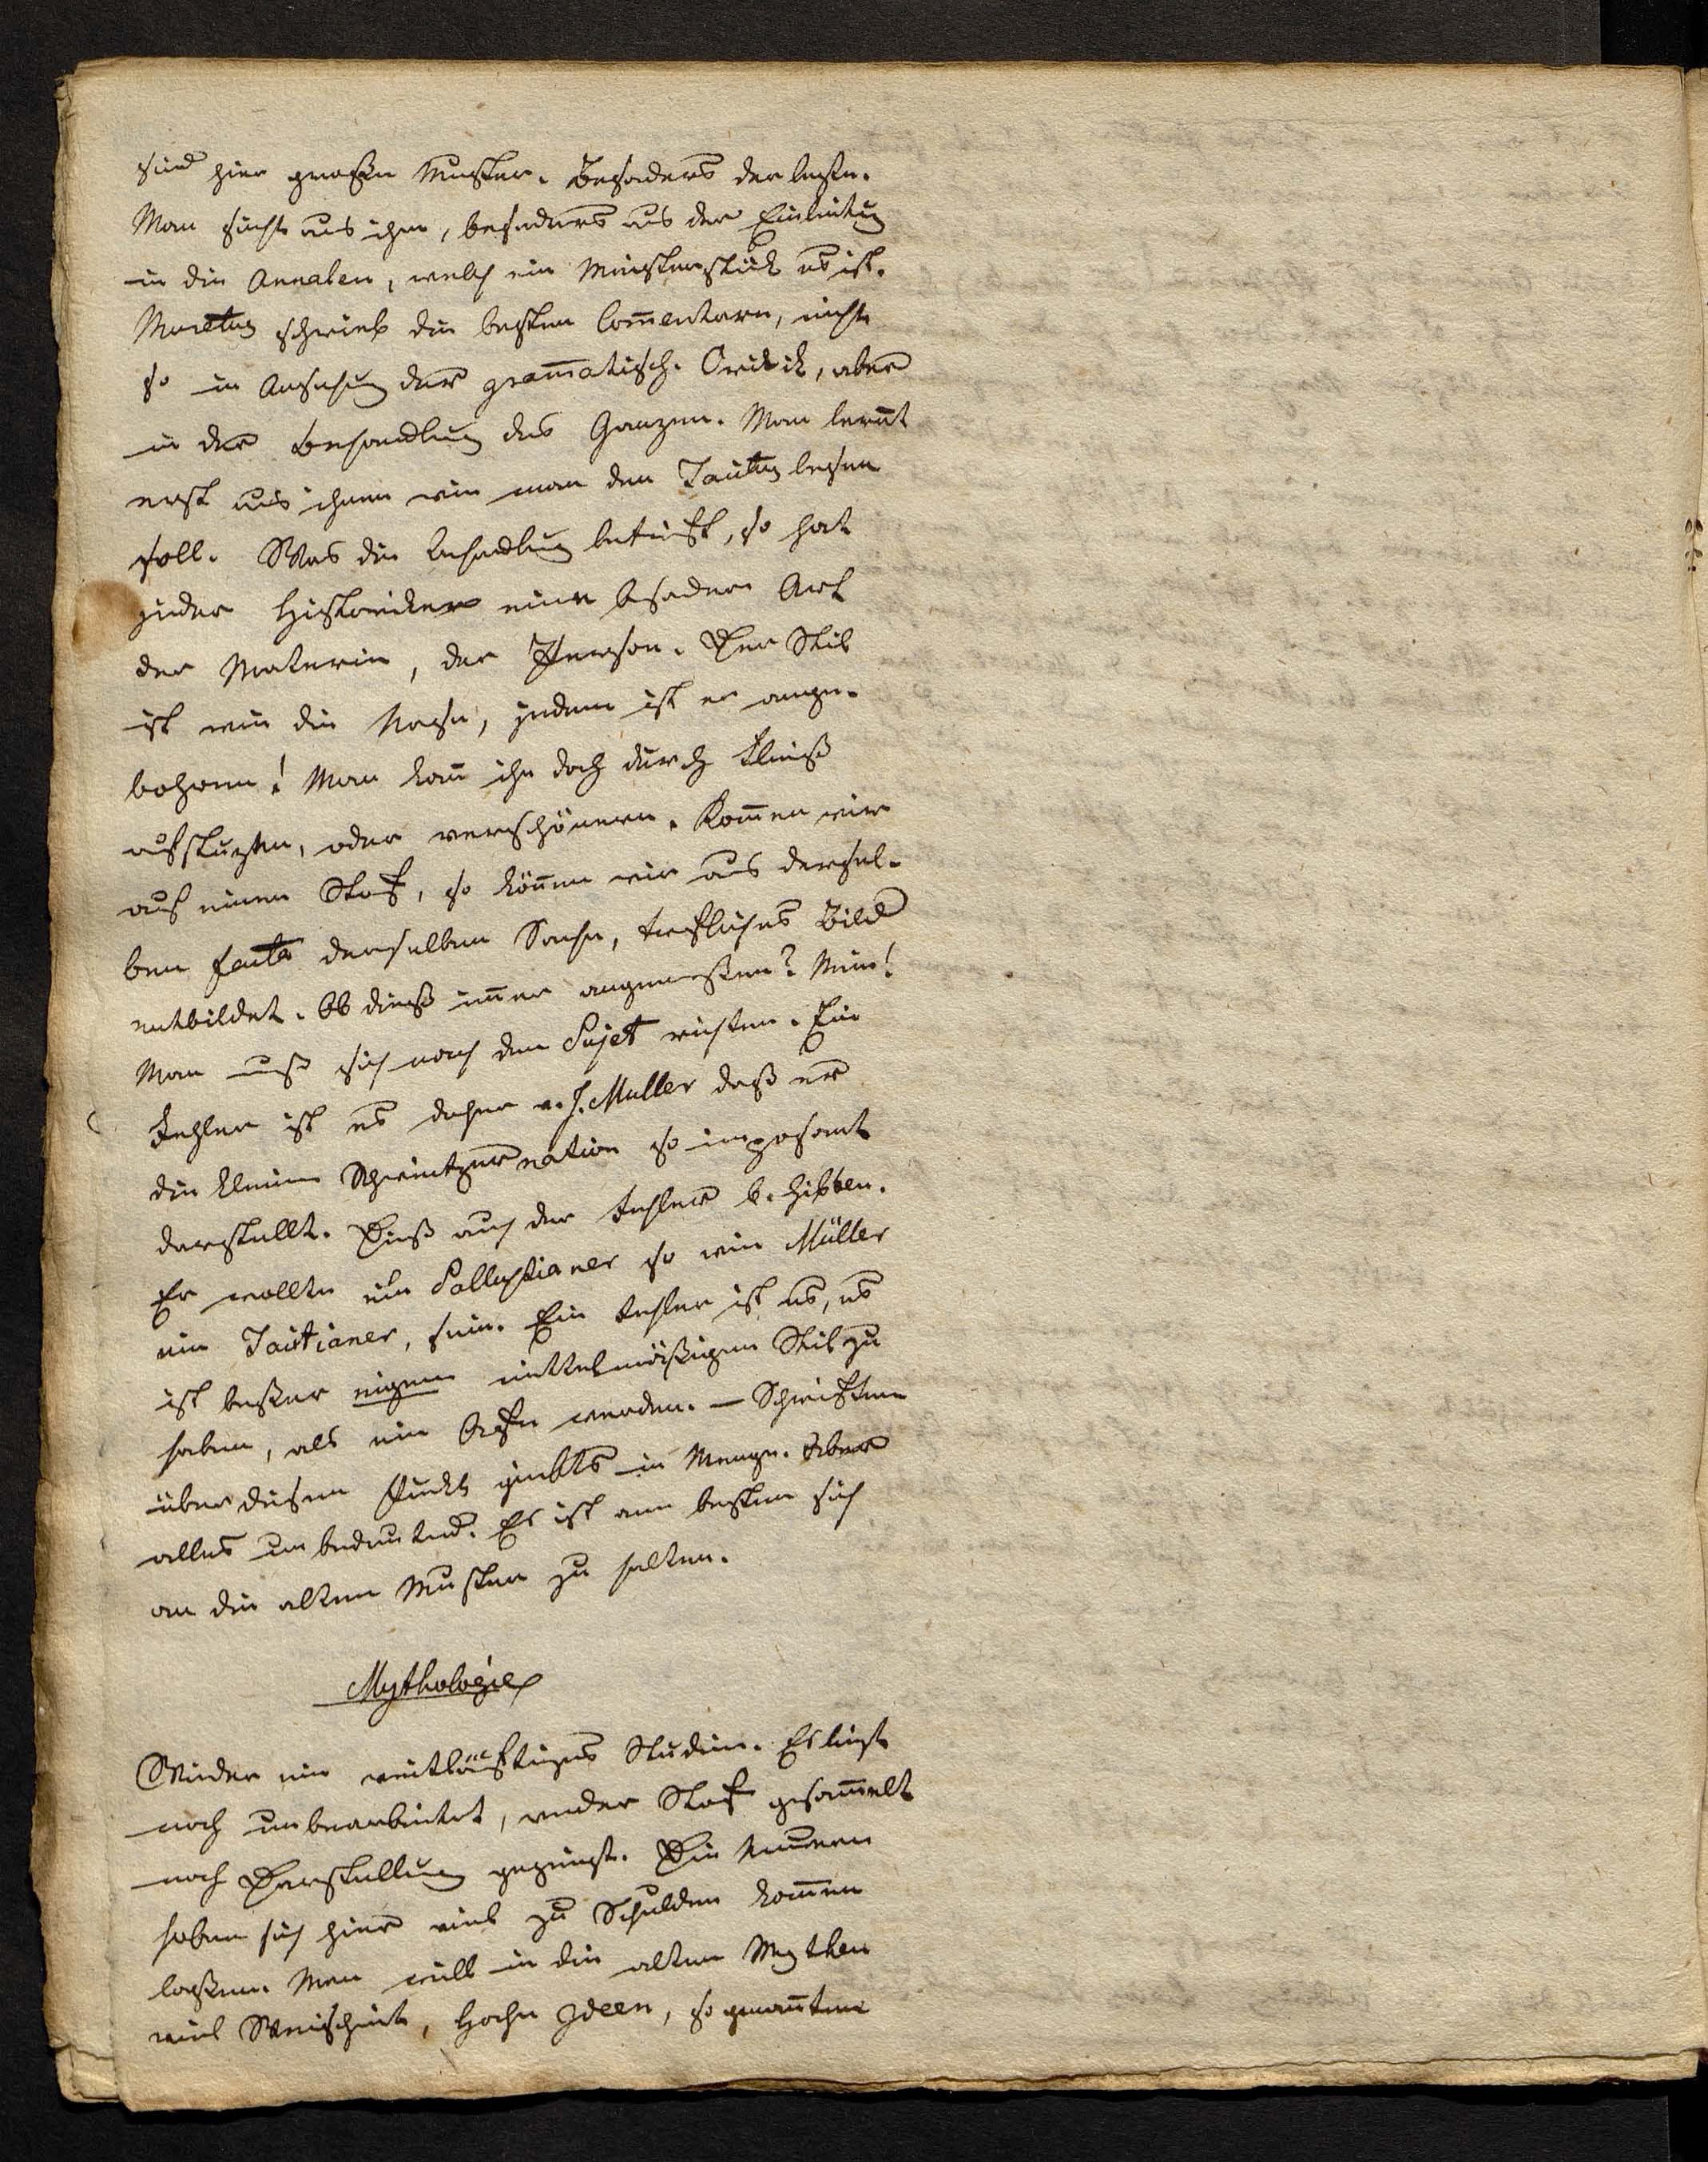 sind hier große Muster. Besonders der leztre.
Man sieht aus ihm, besonders aus der Einleitung
in die Annalen, welch ein Meisterstück es ist.
Muretus schrieb die besten Com̄entare, nicht
so in Ansehung der gram̄atisch. Critik, aber
in der Behandlung des Ganzen. Man lernt
erst aus ihnen wie man den Tacitus lesen
soll. Was die Behandlung betrift, so hat
jeder Historiker eine besondere Art
der Materie, der Person. Der Stil
ist wie die Nase, jedem ist er ange-
bohren! Man kan̄ ihn doch durch Fleiß
aufstuzen, oder verschönern. Kom̄en wir
auf einen Stof, so kön̄en wir aus dersel-
ben facta derselben Sache, trefliches Bild
entbildet. Ob dieß im̄er angemeßen? Nein!
Man muß sich nach dem Sujet richten. Ein
Fehler ist es daher v. J. Muller daß er
die kleine Schweitzernation so imposant
darstellt. Dieß auch der Fehler b. Gibbon.
Er wollte ein Sallustianer so wie Müller
ein Tacitianer, sein. Ein Fehler ist es, es
ist beßer eigenen mittelmäßigen Stil zu
haben, als ein Affe werden. – Schriften
über diesen Punkt giebts in Menge. Aber
alles unbedeutend. Es ist am besten sich
an die alten Muster zu halten.
Mythologie
Wieder ein weitläuftiges Studium. Es liegt
noch unbearbeitet, weder Stof gesam̄elt
noch Darstellung gezeigt. Die Neuern
haben sich hier viel zu Schulden kom̄en
laßen. Man will in die alten Mythen
viel Weisheit, hohe Ideen, so genan̄te